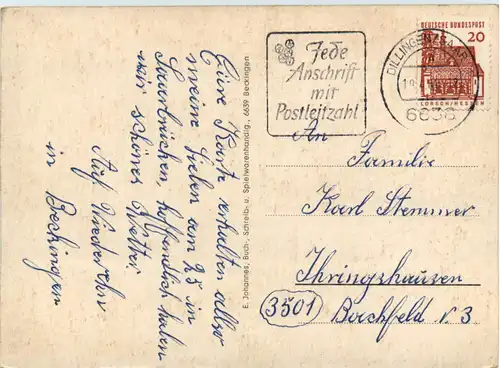 Eure Karte erhalten allso
meine Lieben am 25 in
Saarbrücken, hoffendlich haben
wir schönes Wetter
Auf Wiedersehn
in Beckingen
E. Johannes, Buch-, Schreib- u. Spielwarenhandlg., 6639 Beckingen
Jede
Anschrift
mit
Postleitzahl
DILLINGEN/SAAR
6638
DEUTSCHE BUNDESPOST
20
LORSCH/HESSEN
An
Familie
Karl Stemmer
Ihringshausen
(3501)
Bachfeld N. 3